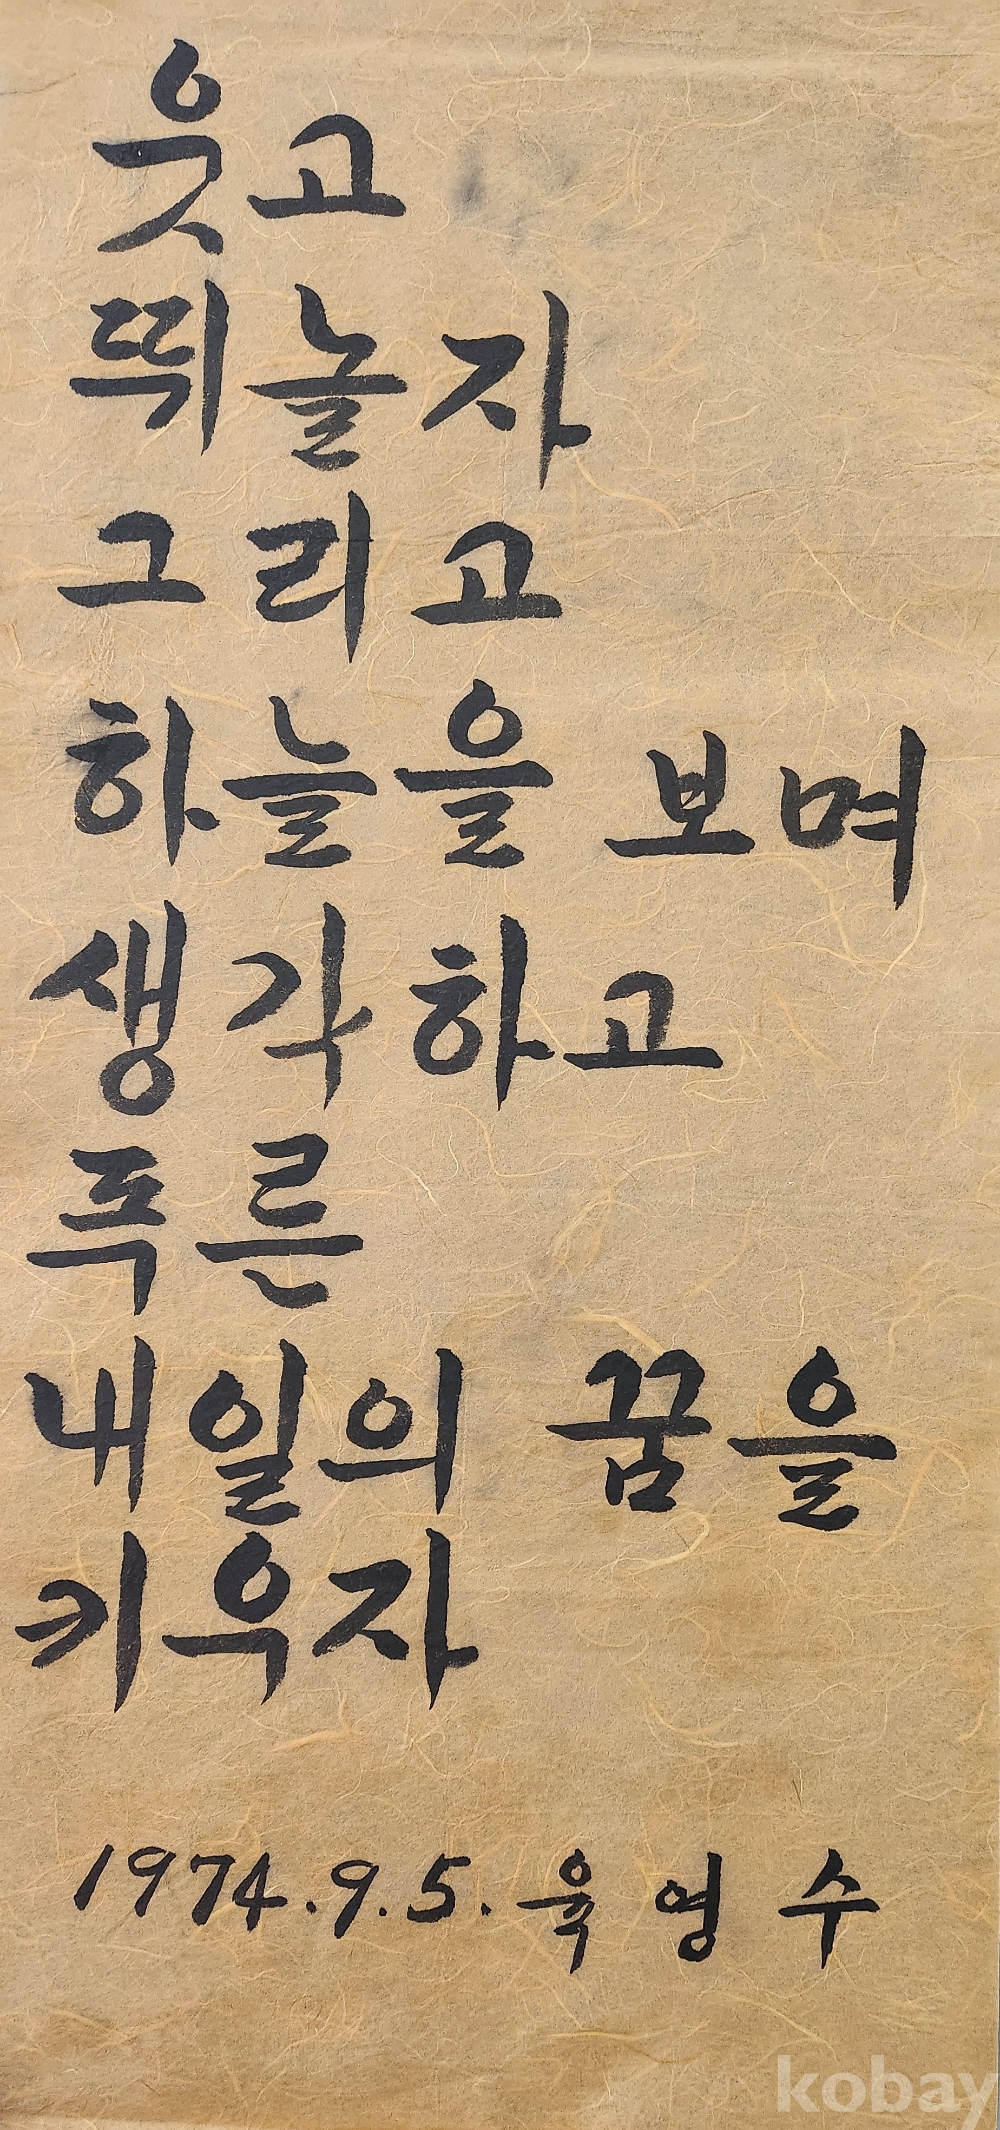 웃고
뛰놀자
그리고
하늘을 보며
생각하고
푸른
내일의 꿈을
키우자
1974.9.5. 육영수
kobay